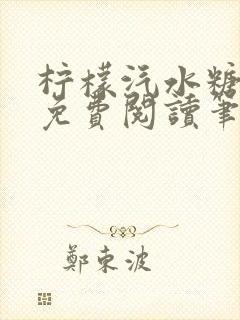 柠檬汽水糖
免費閱讀筆
鄭東波